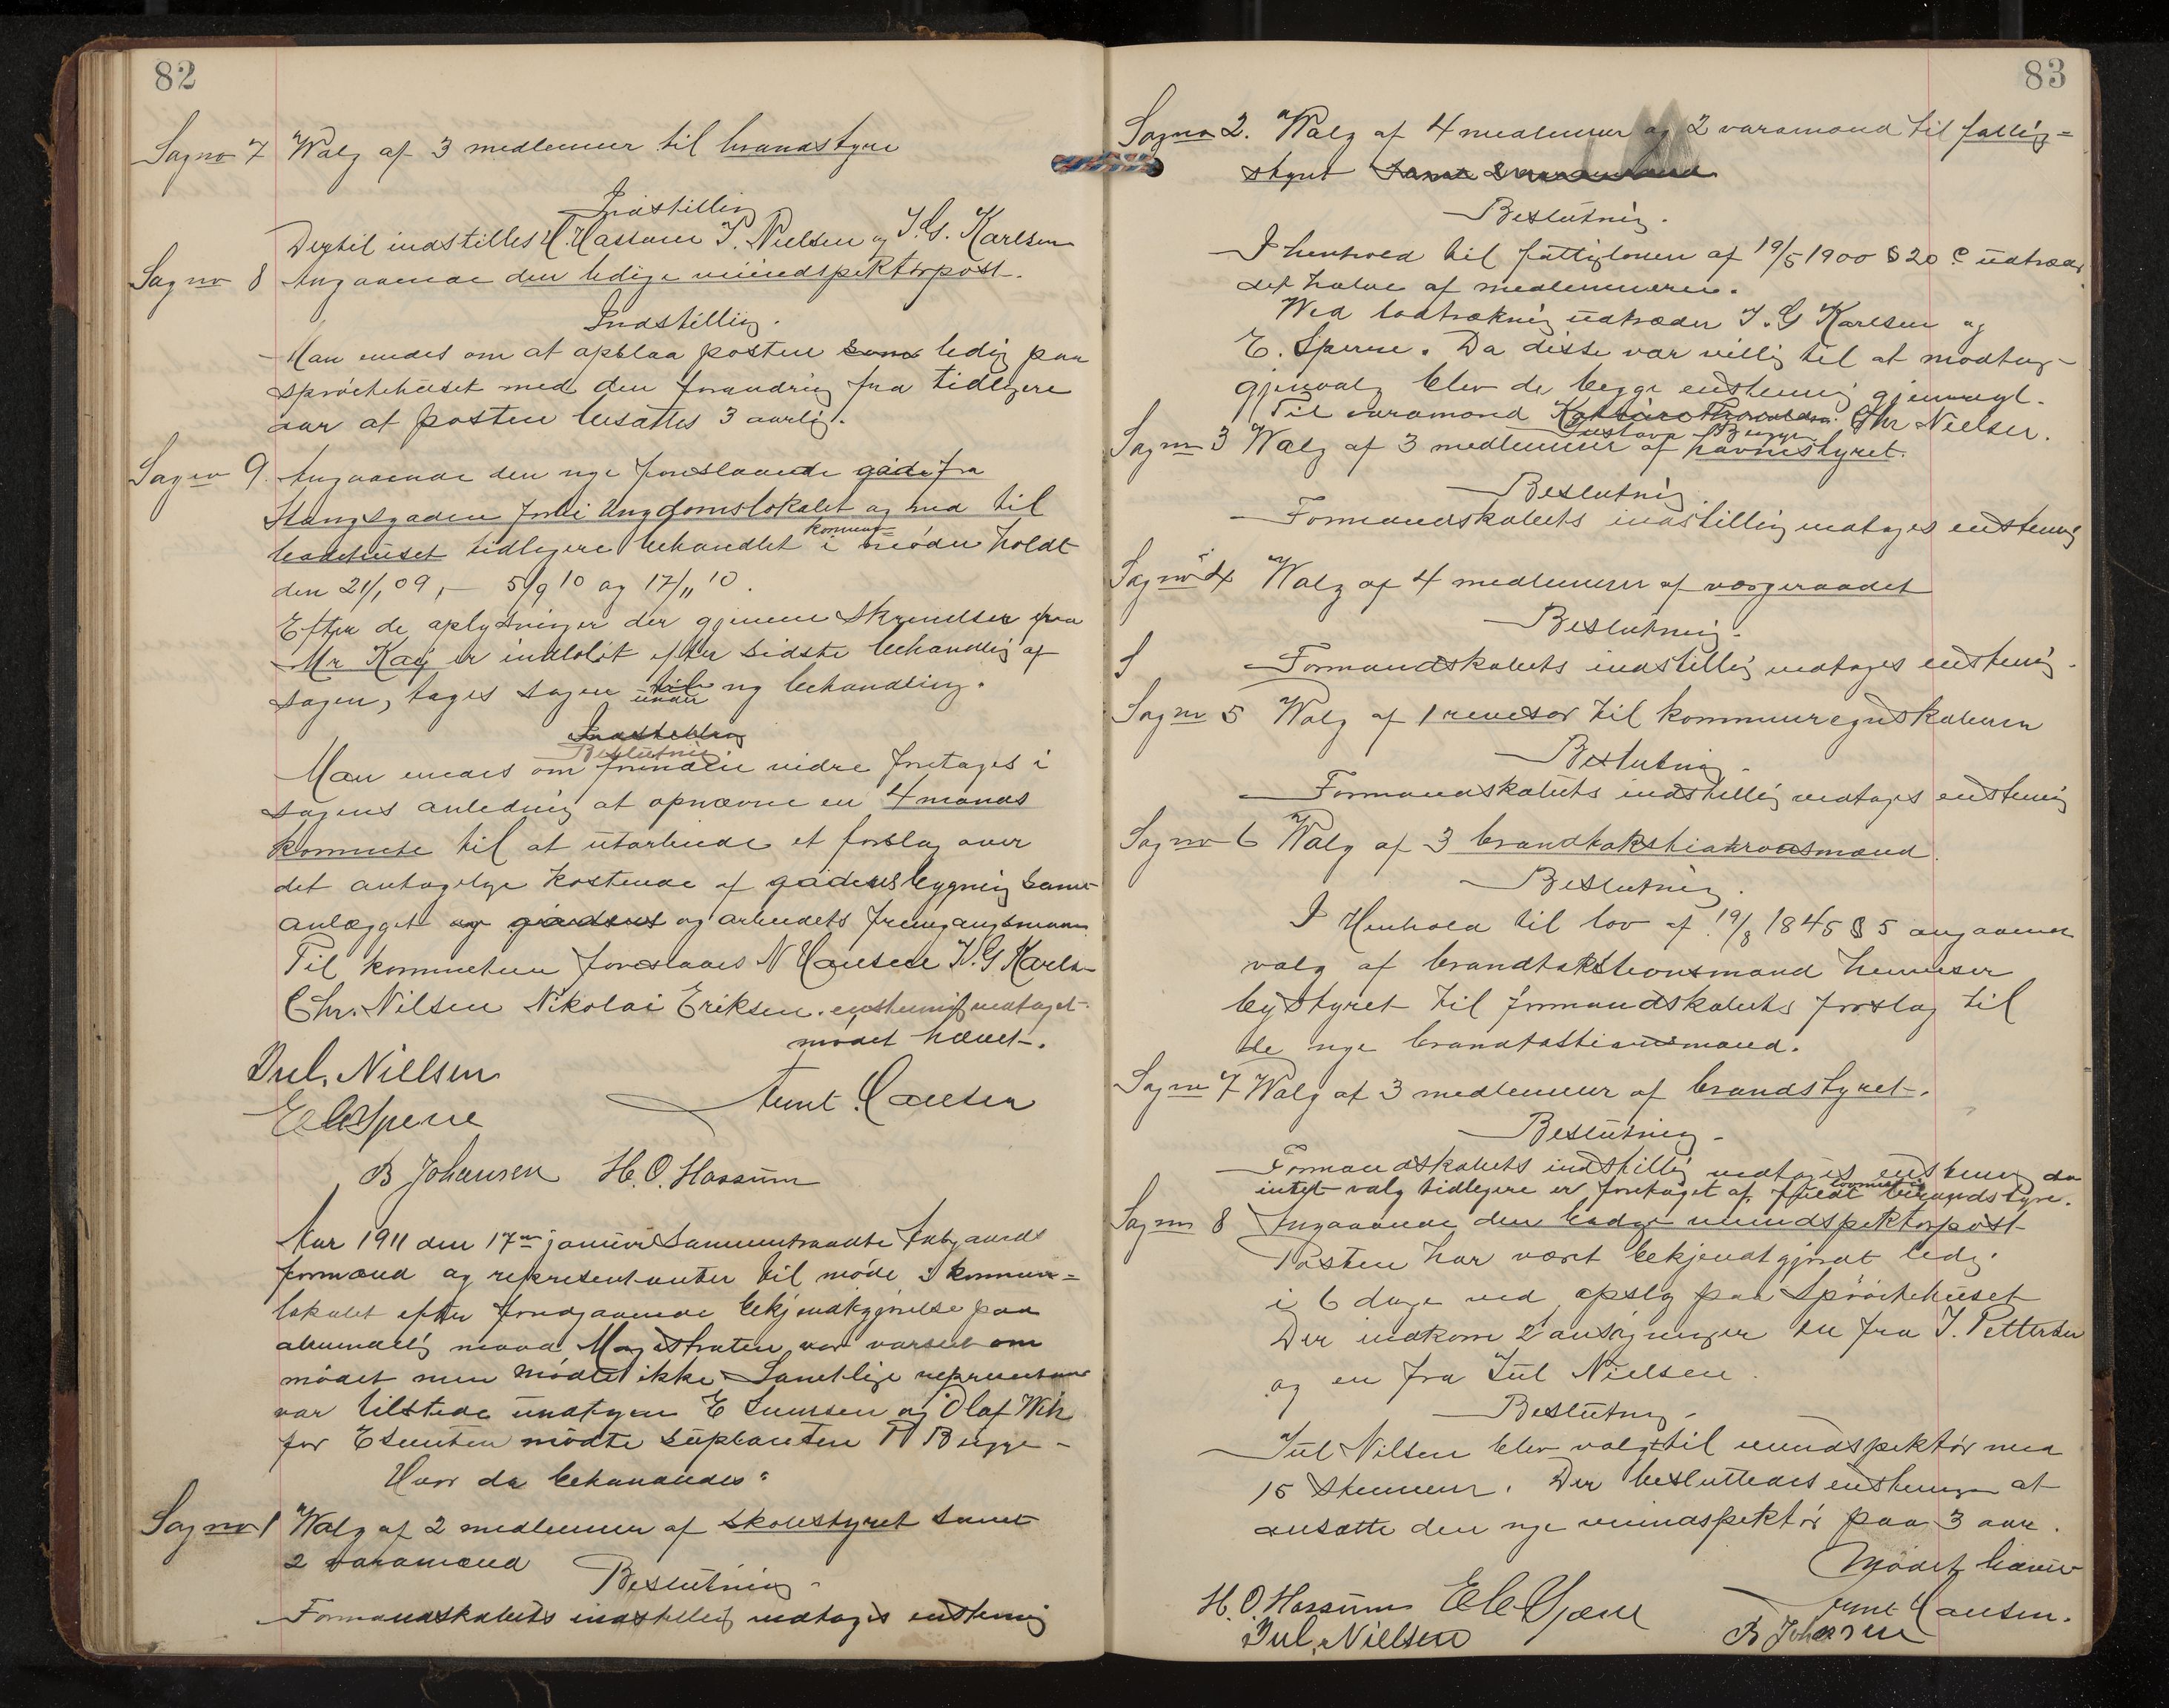 82
Sag no 7 Walg af 3 medlemmer til brandstyre
Indstilling
Dertil indstilles H. Hassum J. Nielsen og J. G. Karlsen
Sag no 8 Angaaende den ledige vinindspektörpost.
Indstilling.
Man enedes om at opslaa posten som ledig paa
spröitehuset med den forandring fra tidligere
aar at posten besættes 3 aarlig.
Sag no 9. Angaaende den nye foreslaaede gade fra
Stangsgaden forbi Ungdomslokalet og ned til
badehuset tidligere behandlet i komune möder holdt
den 21/1 09, – 5/9 10 og 17/11 10.
Efter de oplysninger der gjennem skrivelser fra
Mr Kay er indlöbt efter sidste behandling af
sagen, tages sagen til under ny behandling.
Indstilling
Beslutning.
Man enedes om forinden vidre foretages i
sagens anledning at opnævne en 4 mands
kommite til at utarbeide et forslag over
det antagelige kostende af gadens bygning samt
anlægget og gadens og arbeidets fremgangsmaade
Til kommiteen foreslaaes N Hansen J. G Karls-
Chr. Nilsen Nikolai Eriksen. enstemmig vedtaget.
mödet hævet.
Jul. Nielsen
Amt. Hansen
E C Sperre
B Johansen H. O. Hassum
Aar 1911 den 17de januar sammentraadte Aabygaards
formænd og representanter til möde i kommune=
lokalet efter foregaaende bekjendtgjörelse paa
almindelig maade Magistraten var varslet om
mödet men mödte ikke Samtlige representanter
var tilstede undtagen E Simsen og Olaf Wik
for E Simsen mödte suplanten P Bugge –
Hvor da behandledes:
Sag no 1 Walg af 2 medlemmer af skolestyret samt
2 varamænd
Beslutning.
Formandskabets indstilling vedtages enstemmig
83
Sag no 2. Walg af 4 medlemmer og 2 varamænd til fattig=
styret samt 2 varamænd
Beslutning.
I henhold til fattigloven af 19/5 1900 § 20 c udtræder
det halve af medlemmerne.
Wed lodtrækning udtræder J. G Karlsen og
E. Sperre. Da disse var villig til at modtage
gjenvalg blev de begge enstemmig gjenvalgt.
Til varamænd Chr Nielsen.
Gustava Bugge
Sag no 3 Walg af 3 medlemmer af havnestyret.
Beslutning.
Formandskabets indstilling vedtages enstemmig
Sag no 4 Walg af 4 medlemmer af værgeraadet
Beslutning.
S Formandskabets indstillig vedtages enstemig.
Sag no 5 Walg af 1 revisor til kommuneregnskaberne
Beslutning.
Formandskabets indstillig vedtages enstemig
Sag no 6 Walg af 3 brandtakstiationsmænd.
Beslutning.
I Henhold til lov af 19/8 1845 § 5 angaaende
valg af brandtakstionsmænd henviser
bystyret til formandskabets forslag til
de nye brandtakstionsmænd.
Sag no 7 Walg af 3 medlemmer af brandstyret.
Beslutning.
Formandskabets indstillig vedtages enstemig da
intet valg tidligere er foretaget af fuldt lovmæssig brandstyre.
Sag no 8 Angaaende den ledige vinindspektörpost
Posten har været bekjendtgjordt ledig
i 6 dage ved opslag paa Spröitehuset
Der indkom 2 ansögninger en fra J. Pettersen
og en fra Jul Nielsen.
Beslutning.
Jul Nilsen blev valgt til vinindspektör med
15 stemmer. Der besluttedes enstemig at
ansætte den nye vinindspektör paa 3 aar.
Mödet hævet
H. O. Hassum E C Sperre Amt Hansen.
Jul. Nielsen B Johansen